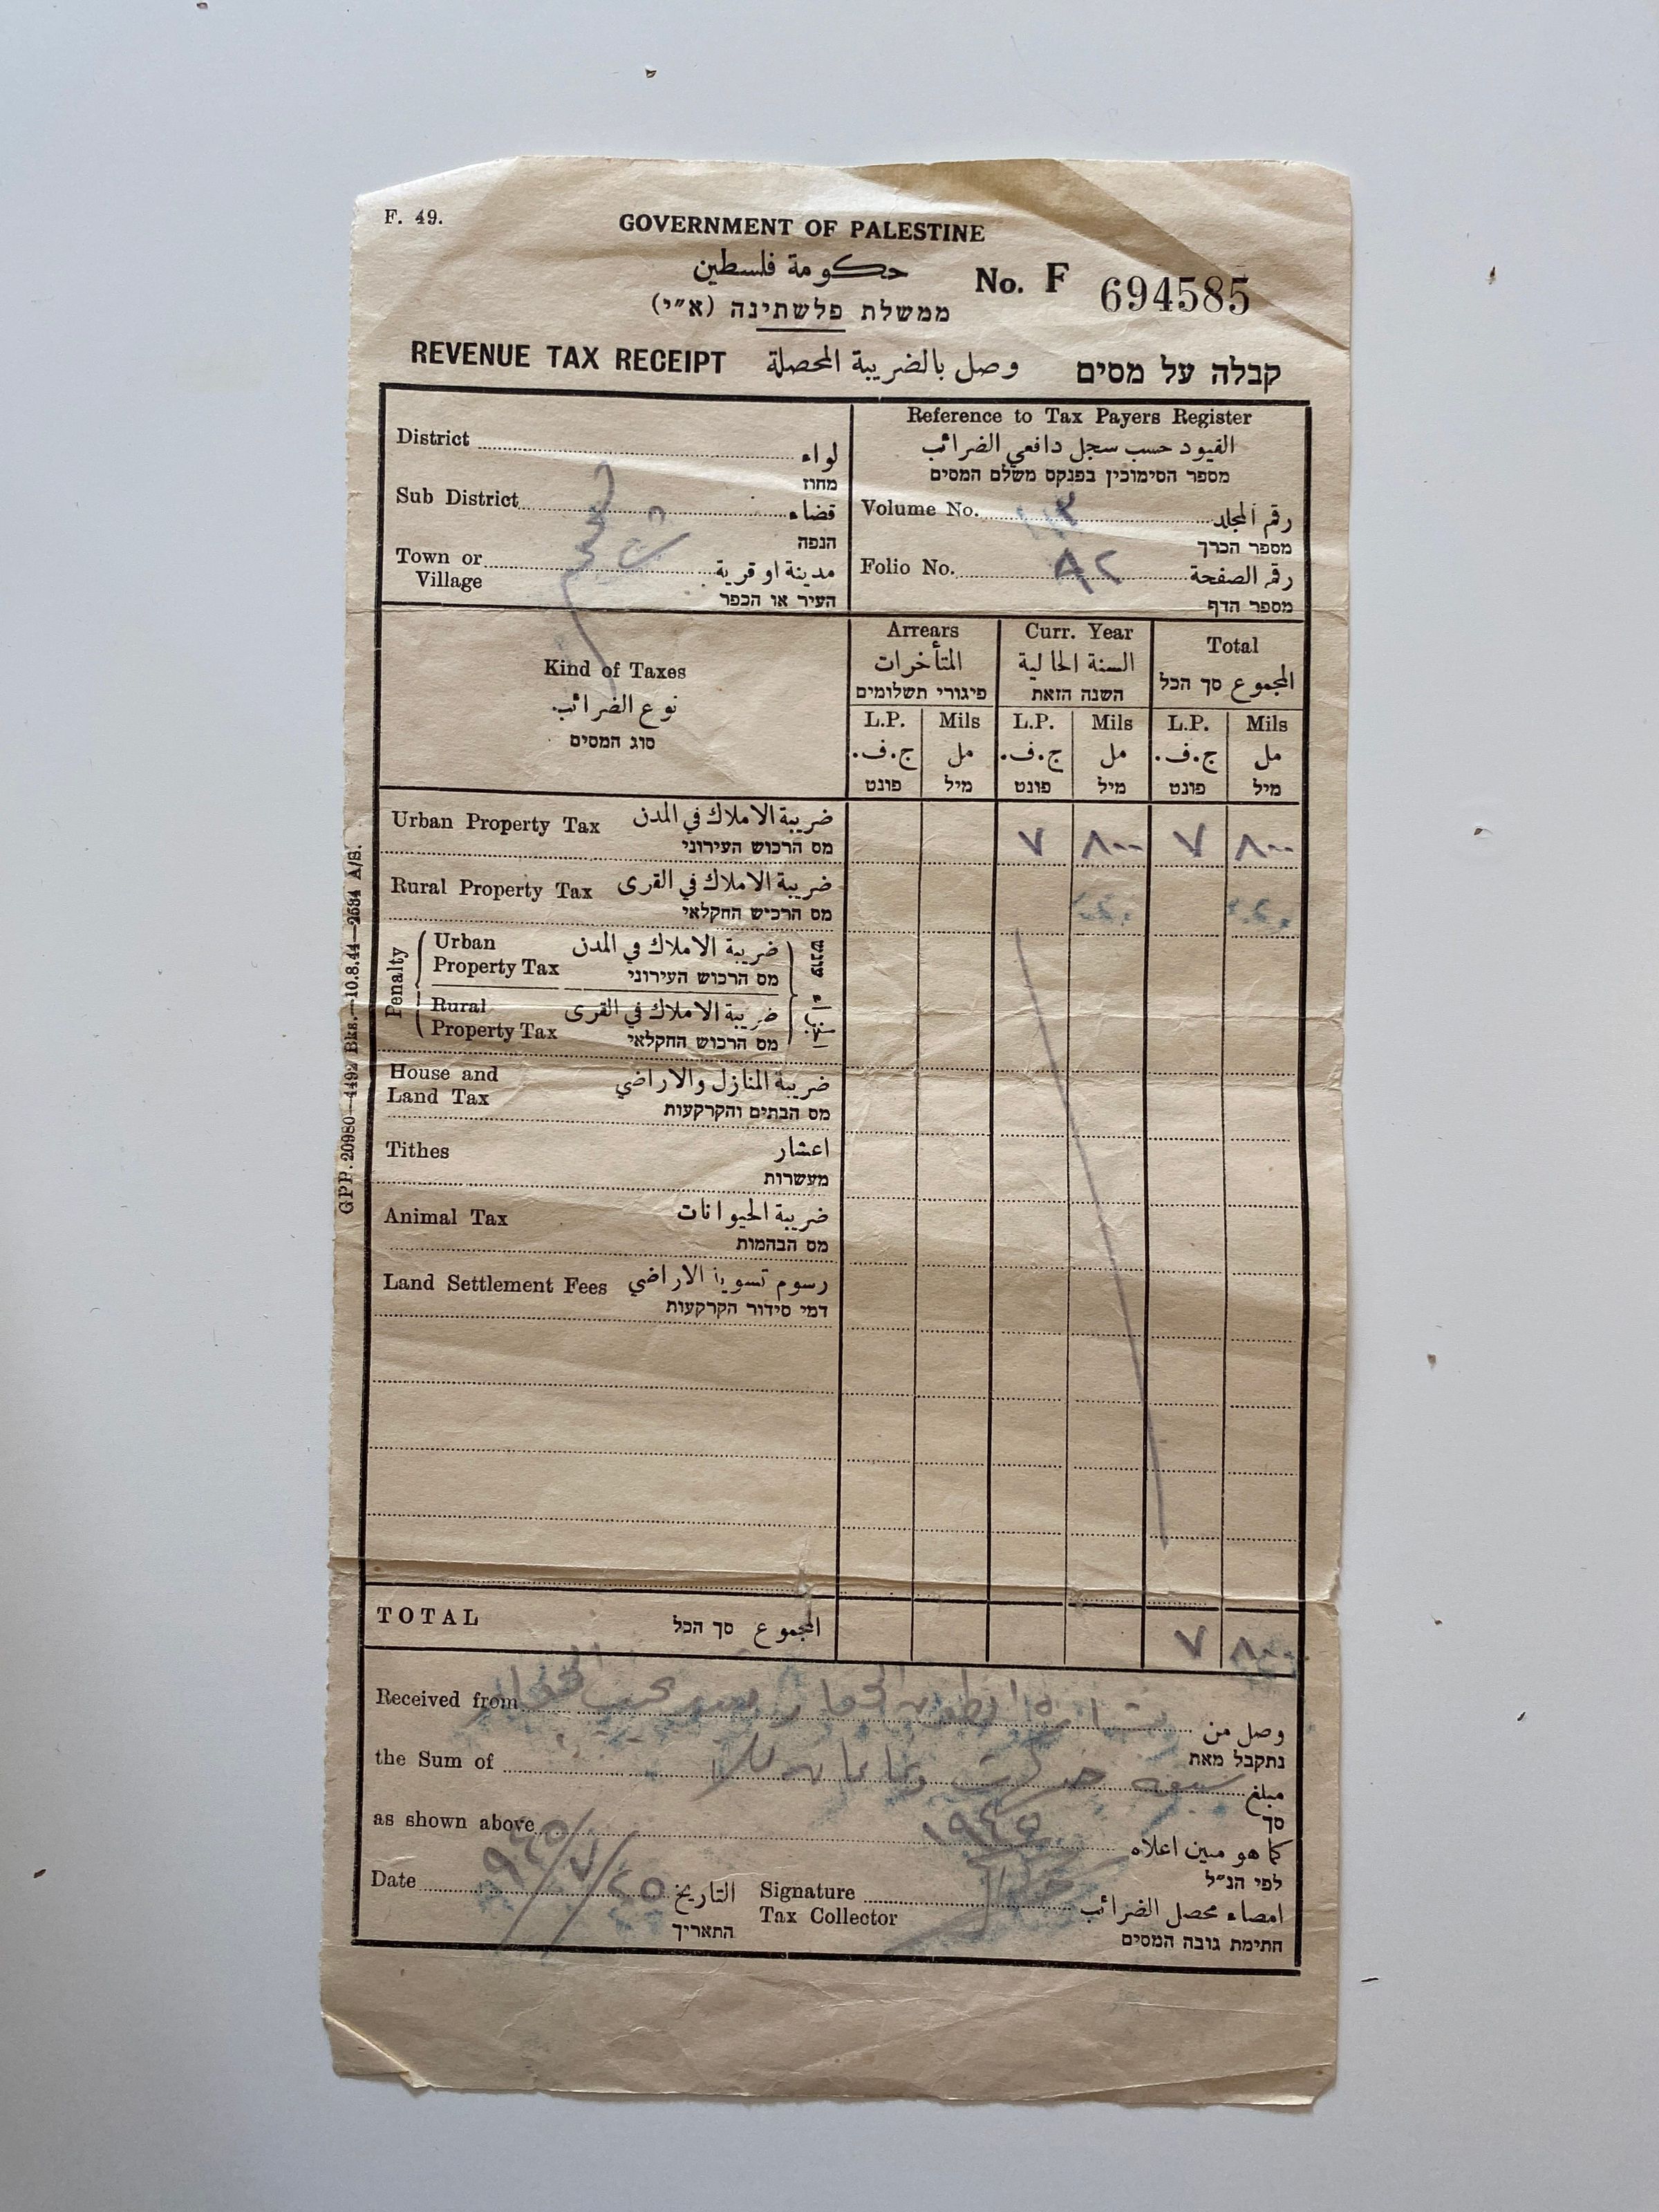 F. 49.
GOVERNMENT OF PALESTINE
حكومة فلسطين
No. F 694585
ממשלת פלשתינה (א״י)
REVENUE TAX RECEIPT وصل بالضريبة المحصلة קבלה על מסים
Reference to Tax Payers Register
القيود حسب سجل دافعي الضرائب
מספר הסימוכין בפנקס משלם המסים
District لواء
מחוז
Sub District قضاء
הנפה
Town or Village مدينة او قرية
העיר או הכפר
Volume No. رقم المجلد
מספר הכרך
Folio No. ٨٢ رقم الصفحة
מספר הדף
Kind of Taxes
نوع الضرائب
סוג המסים
Arrears Curr. Year Total
المتأخرات السنة الحالية المجموع סך הכל
פיגורי תשלומים השנה הזאת
L.P. Mils L.P. Mils L.P. Mils
ج.ف. مل ج.ف. مل ج.ف. مل
פונט מיל פונט מיל פונט מיל
Urban Property Tax ضريبة الاملاك في المدن ٧ ٨٠٠ ٧ ٨٠٠
מס הרכוש העירוני
Rural Property Tax ضريبة الاملاك في القرى
מס הרכיש החקלאי
Penalty עונש
Urban Property Tax ضريبة الاملاك في المدن
מס הרכוש העירוני
Rural Property Tax ضريبة الاملاك في القرى
מס הרכוש החקלאי
House and Land Tax ضريبة المنازل والاراضي
מס הבתים והקרקעות
Tithes اعشار
מעשרות
Animal Tax ضريبة الحيوانات
מס הבהמות
Land Settlement Fees رسوم تسوية الاراضي
דמי סידור הקרקעות
TOTAL סך הכל المجموع ٧ ٨٠٠
Received from وصل من
נתקבל מאת
the Sum of سبعة جنيهات مبلغ
סך
as shown above ١٩٤٥ كما هو مبين اعلاه
לפי הנ״ל
Date ٢٥/٧/٩٤٥ التاريخ
התאריך
Signature Tax Collector امضاء محصل الضرائب
חתימת גובה המסים
GPP. 20980—4492 Bks.—10.8.44—2584 A/S.